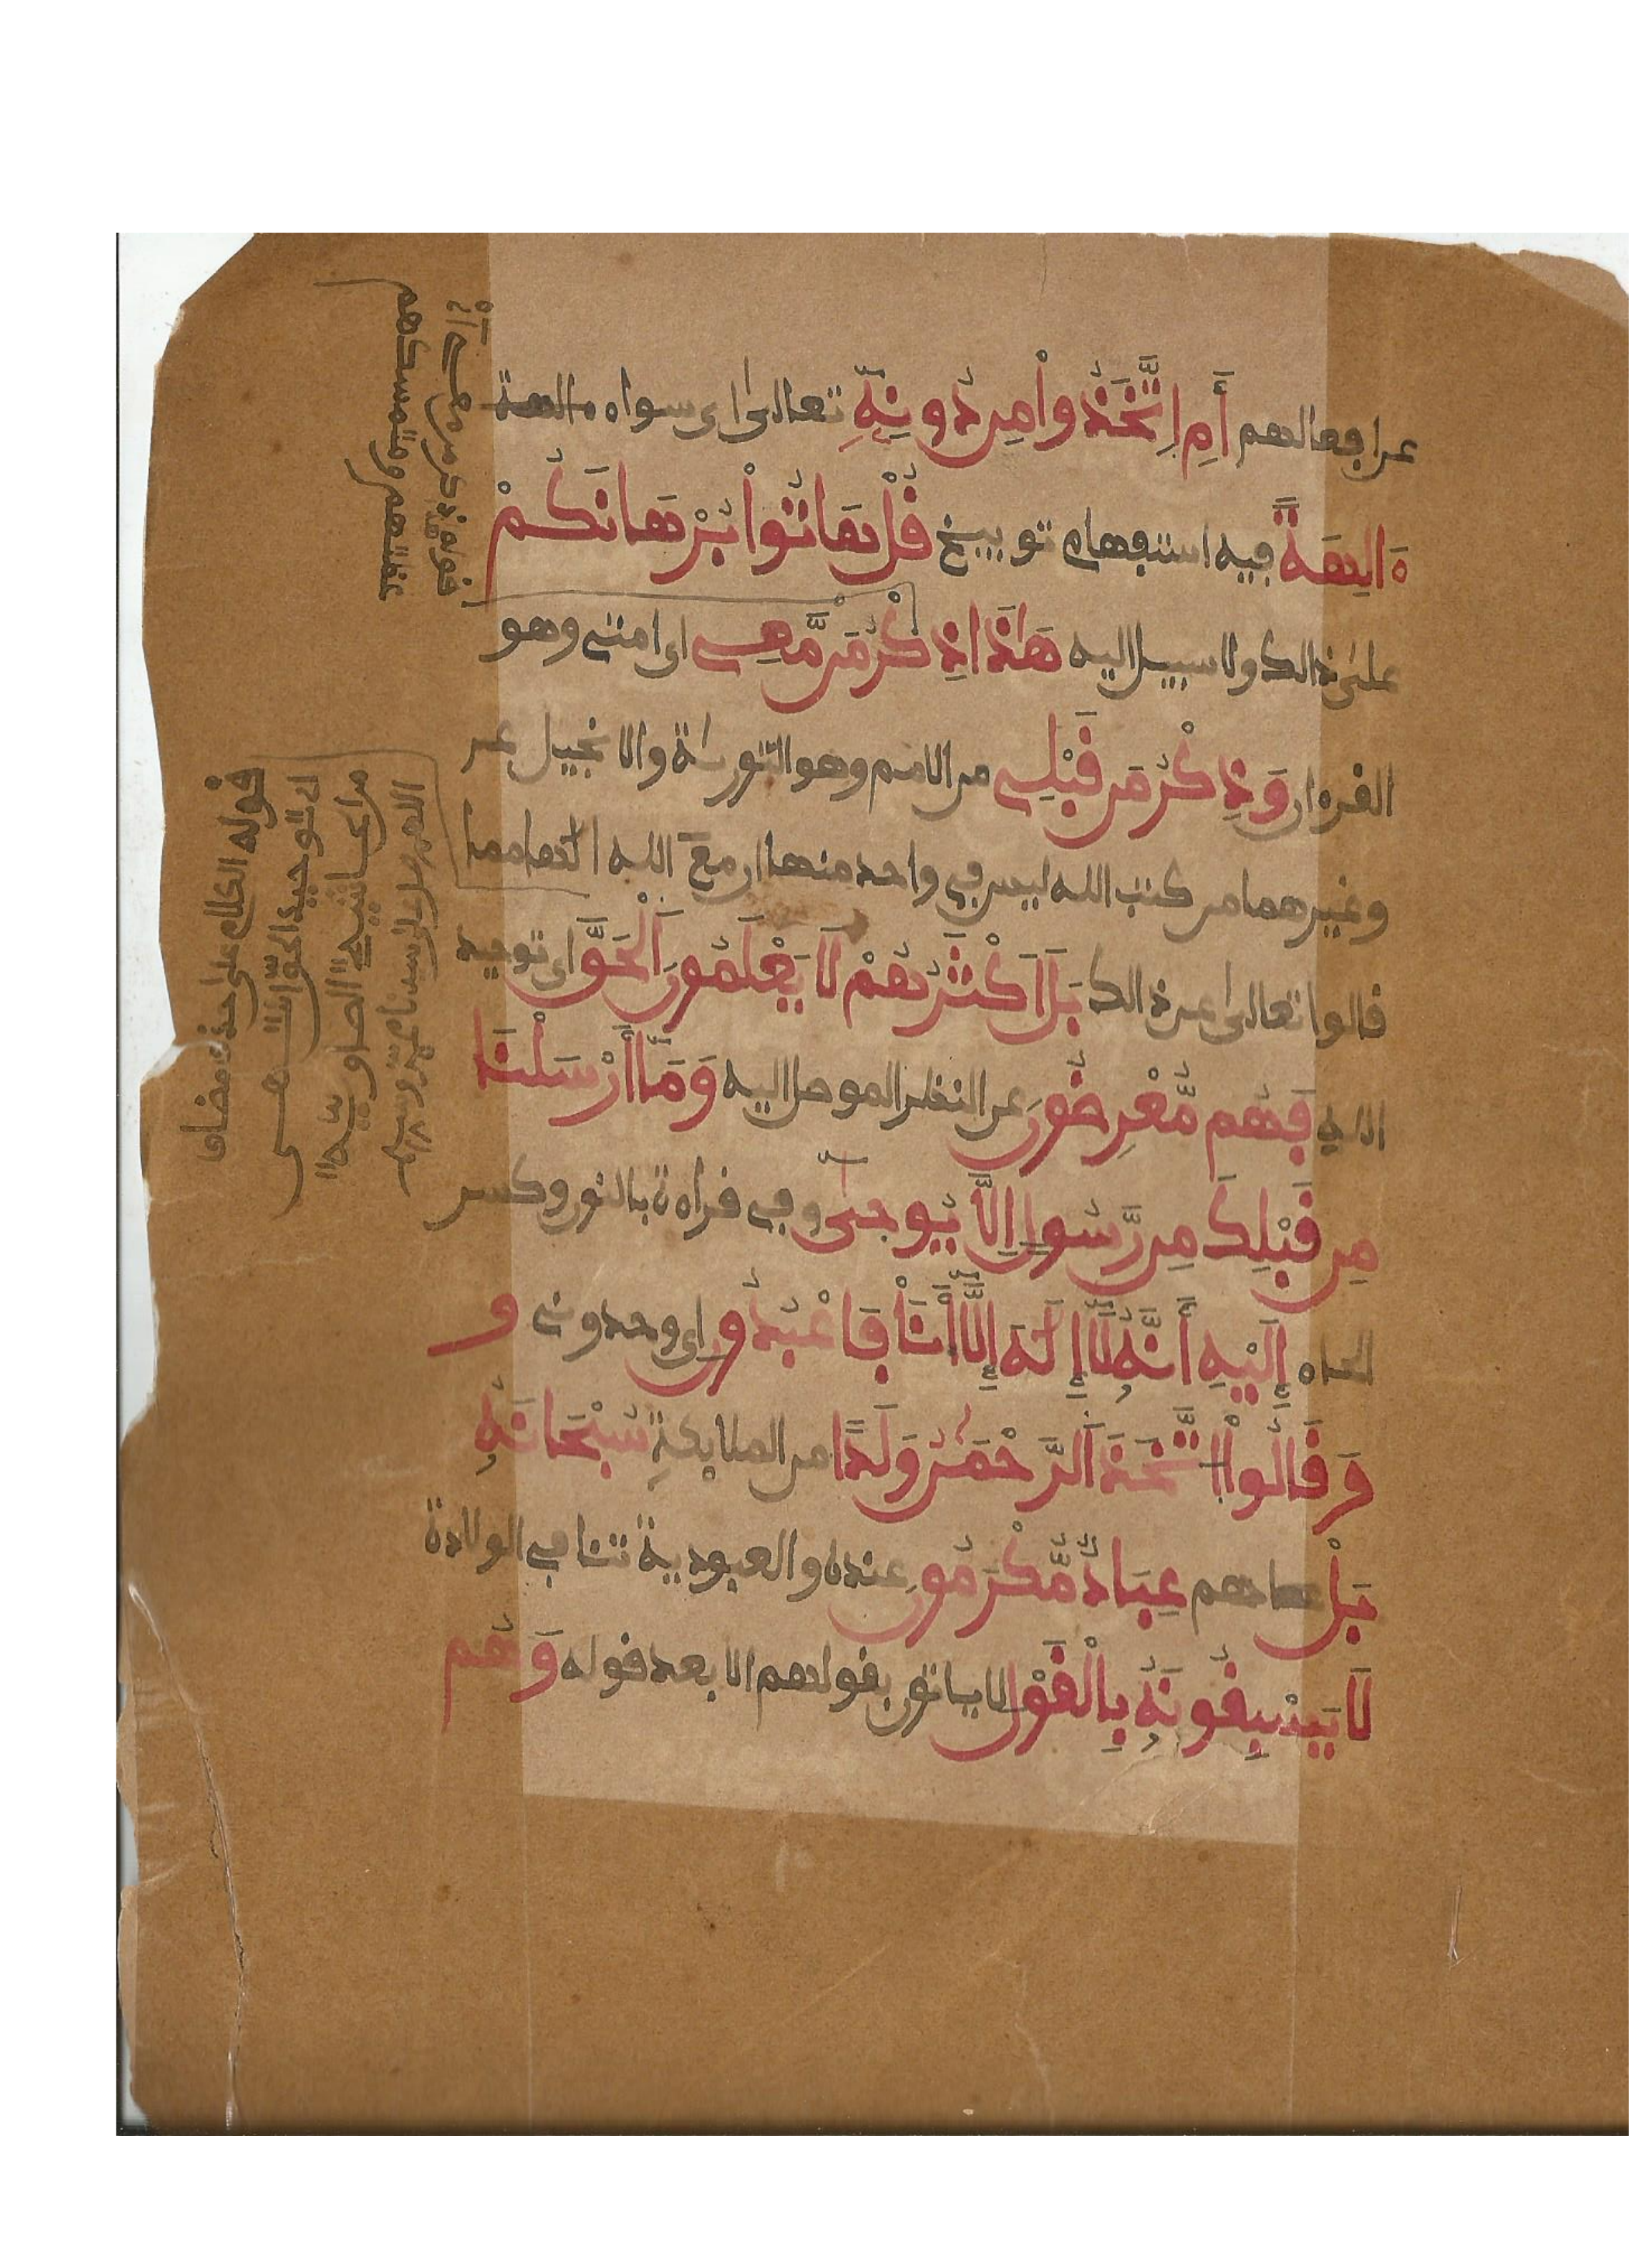 عن افعالهم أَمِ اِتَّخَذُواْ مِن دُونِهِۦٓ تعالى اى سواه الهة
ءَالِهَةً فيه استفهام توبيخ قُلْ هَاتُواْ بُرْهَانَكُمْ
على ذالك ولا سبيل اليه هَٰذَا ذِكْرُ مَن مَّعِے اى امتى وهو
القرءان وَذِكْرُ مَن قَبْلِے من الامم وهو التورىٰة والانجيل
وغيرهما من كتب الله ليس في واحد منها ان مع الله الٰها مما
قالوا تعالى عن ذالك بَلَ اَكْثَرُهُمْ لَا يَعْلَمُونَ اَلْحَقَّ اى توحيد
الاه فَهُم مُّعْرِضُونَ عن النظر الموصل اليه وَمَآ أَرْسَلْنَا
مِن قَبْلِكَ مِن رَّسُولٍ اِلَّا يُوحَىٰٓ وفي قراءة بالنون وكسر
الحاء إِلَيْهِ أَنَّهُۥ لَآ إِلَٰهَ إِلَّآ أَنَا۠ فَاعْبُدُونِ اى وحدونى و
وَقَالُواْ اُ۪تَّخَذَ اَلرَّحْمَٰنُ وَلَدًا من الملائكة سُبْحَانَهُۥ
بَلْ هم عِبَادٌ مُّكْرَمُونَ عنده والعبودية تنافي الولادة
لَا يَسْبِقُونَهُۥ بِالْقَوْلِ لا ياتون بقولهم الا بعد قوله وَهُم
قوله الكلام على حذف مضاف
اى توحيد الحق انتهى
من حاشية الصاوى
اللهم صل على سيدنا محمد وسلم